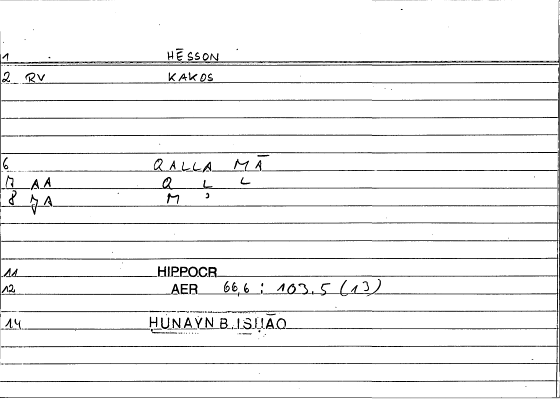 1 HĒSSON
2 RV KAKOS
6 QALLA MĀ
7 AA Q L L
8 JA M ʾ
11 HIPPOCR
12 AER 66,6 : 103.5 (13)
14 HUNAYN B.ISḤĀQ